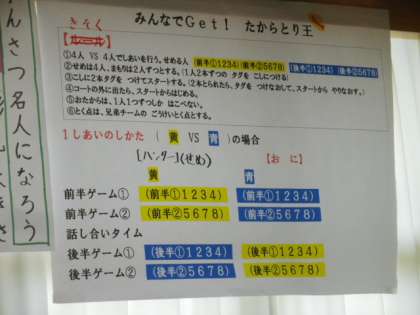 みんなでGet! たからとり王
きそく
①4人 VS 4人でしあいを行う。せめる人 (前半①1234)(前半②5678) (後半①1234)(後半②5678)
②せめは4人、まもりは2人ずつとする。(1人2本ずつの タグを こしにつける)
③こしに2本タグを つけてスタートする。(2本とられたら、タグを つけなおして、スタートから やりなおす。)
④コートの外に出たら、スタートからはじめる。
⑤おたからは、1人1つずつしか はこべない。
⑥とく点は、兄弟チームの ごうけいとく点とする。
1しあいのしかた ( 黄 VS 青 )の場合
[ハンター](せめ) 【おに】
黄 青
前半ゲーム① (前半①1234) (前半①1234)
前半ゲーム② (前半②5678) (前半②5678)
話し合いタイム
後半ゲーム① (後半①1234) (後半①1234)
後半ゲーム② (後半②5678) (後半②5678)
さつ名人になろう